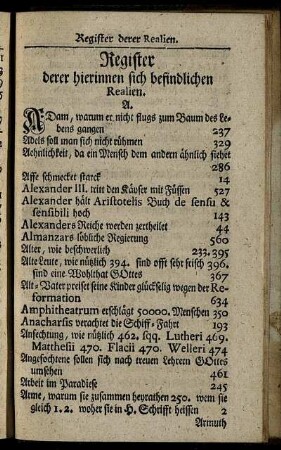 Register derer Realien.
Register
derer hierinnen sich befindlichen
Realien.
A.
ADam, warum er nicht flugs zum Baum des Le-
bens gangen 237
Adels soll man sich nicht rühmen 329
Aehnlichkeit, da ein Mensch dem andern ähnlich siehet
286
Affe schmecket starck 14
Alexander III. tritt den Käyser mit Füssen 527
Alexander hält Aristotelis Buch de sensu &
sensibili hoch 143
Alexanders Reiche werden zertheilet 44
Almanzars löbliche Regierung 560
Alter, wie beschwerlich 233. 395
Alte Leute, wie nützlich 394. sind offt sehr frisch 396.
sind eine Wohlthat GOttes 367
Alt-Vater preiset seine Kinder glückselig wegen der Re-
formation 634
Amphitheatrum erschlägt 50000. Menschen 350
Anacharsis verachtet die Schiff-Fahrt 193
Anfechtung, wie nützlich 462. sqq. Lutheri 469.
Matthesii 470. Flacii 470. Welleri 474
Angefochtene sollen sich nach treuen Lehrern GOttes
umsehen 461
Arbeit im Paradiese 245
Arme, warum sie zusammen heyrathen 250. wem sie
gleich 1. 2. woher sie in H. Schrifft heissen 2
Armuth